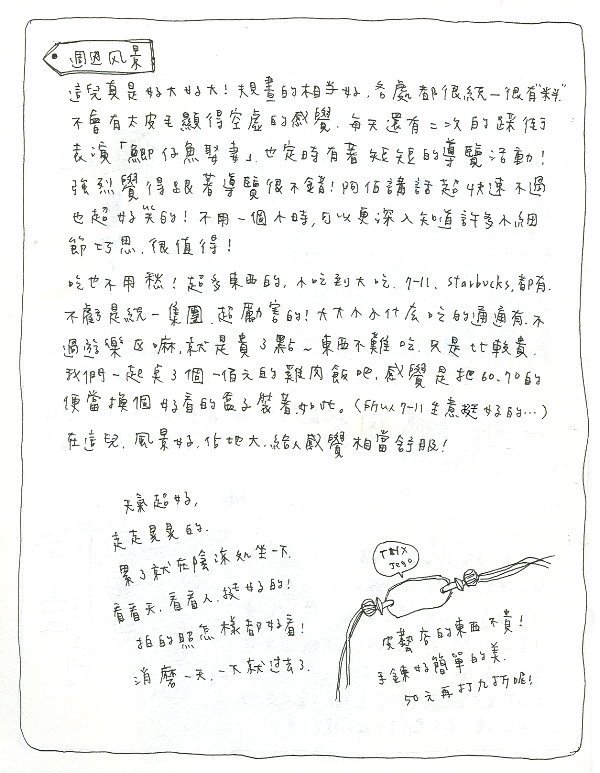 週邊風景
這兒真是好大好大！規畫的相當好，各處都很統一很有"料"
不會有太皮毛顯得空虛的感覺，每天還有二次的踩街
表演「鯽仔魚娶妻」，也定時有著短短的導覽活動！
強烈覺得跟著導覽很不錯！阿伯講話超快速不過
也超好笑的！不用一個小時，可以更深入知道許多小細
節巧思，很值得！
吃也不用愁！超多東西的，小吃到大吃，7-11、starbucks，都有
不虧是統一集團，超勵害的！大大小小什麼吃的通通有，不
過遊樂區嘛，就是貴了點～東西不難吃，只是比較貴，
我們一起買了個一佰元的雞肉飯吧，感覺是把60、70的
便當換個好看的盒子裝著，如此。(所以7-11生意挺好的…)
在這兒，風景好，佔地大，給人感覺相當舒服！
天氣超好，
走走晃晃的，
累了就在陰涼處坐一下，
看看天，看看人，挺好的！
拍的照怎樣都好看！
消磨一天，一下就過去了.
Jego
皮藝店的東西不貴！
手鍊好簡單的美，
50元再打九折呢！